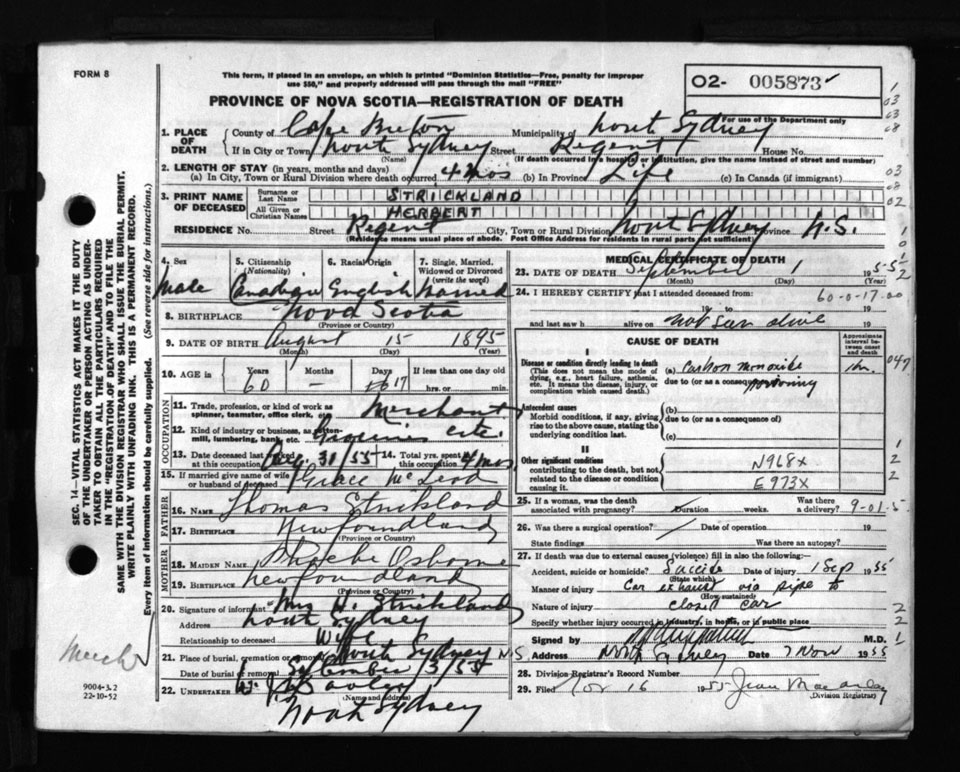 FORM 8
This form, if placed in an envelope, on which is printed "Dominion Statistics—Free, penalty for improper
use $50," and properly addressed will pass through the mail "FREE"
02- 005873
For use of the Department only
PROVINCE OF NOVA SCOTIA—REGISTRATION OF DEATH
1. PLACE OF DEATH
County of Cape Breton Municipality of North Sydney
If in City or Town North Sydney Street Regent House No.
(Name) (If death occurred in a hospital or institution, give the name instead of street and number)
2. LENGTH OF STAY (in years, months and days)
(a) In City, Town or Rural Division where death occurred 4 mos (b) In Province Life (c) In Canada (if immigrant)
3. PRINT NAME OF DECEASED
Surname or Last Name STRICKLAND
All Given or Christian Names HERBERT
RESIDENCE No. Street Regent City, Town or Rural Division North Sydney Province N.S.
(Residence means usual place of abode. Post Office Address for residents in rural parts not sufficient)
4. Sex Male
5. Citizenship (Nationality) Canadian
6. Racial Origin English
7. Single, Married, Widowed or Divorced (write the word) Married
8. BIRTHPLACE Nova Scotia
(Province or Country)
9. DATE OF BIRTH August 15 1895
(Month) (Day) (Year)
10. AGE in Years Months Days If less than one day old
60 — 17 hrs. or min.
OCCUPATION
11. Trade, profession, or kind of work as spinner, teamster, office clerk, etc. Merchant
12. Kind of industry or business, as cotton-mill, lumbering, bank, etc. Groceries etc.
13. Date deceased last worked at this occupation Aug 31/55 14. Total yrs. spent in this occupation 4 mos
15. If married give name of wife or husband of deceased Grace McLeod
FATHER
16. NAME Thomas Strickland
17. BIRTHPLACE Newfoundland
(Province or Country)
MOTHER
18. MAIDEN NAME Phoebe Osborne
19. BIRTHPLACE Newfoundland
(Province or Country)
20. Signature of informant Mrs H. Strickland
Address North Sydney
Relationship to deceased Wife
21. Place of burial, cremation or removal North Sydney N.S
Date of burial or removal September 3/55
22. UNDERTAKER
(Name and Address)
North Sydney
MEDICAL CERTIFICATE OF DEATH
23. DATE OF DEATH September 1 1955
(Month) (Day) (Year)
24. I HEREBY CERTIFY that I attended deceased from
60-0-17-00
19 to 19
and last saw h alive on not seen alive 19
CAUSE OF DEATH
Approximate interval between onset and death
I
Disease or condition directly leading to death
(This does not mean the mode of dying, e.g., heart failure, asthenia, etc. It means the disease, injury, or complication which caused death.)
(a) Carbon monoxide 1 hr.
due to (or as a consequence of) poisoning
Antecedent causes
Morbid conditions, if any, giving rise to the above cause, stating the underlying condition last.
(b)
due to (or as a consequence of)
(c)
II
Other significant conditions contributing to the death, but not related to the disease or condition causing it.
N968x
E973x
25. If a woman, was the death associated with pregnancy? Duration weeks. Was there a delivery? 9-01-5
26. Was there a surgical operation? Date of operation 19
State findings Was there an autopsy?
27. If death was due to external causes (violence) fill in also the following:
Accident, suicide or homicide? Suicide Date of injury 1 Sep 1955
(State which)
Manner of injury Car exhaust via pipe to
(How sustained)
Nature of injury closed car
Specify whether injury occurred in industry, in home, or in public place
Signed by M.D.
Address North Sydney Date 7 Nov 1955
28. Division Registrar's Record Number
29. Filed Nov 16 1955
(Division Registrar)
SEC. 14—VITAL STATISTICS ACT MAKES IT THE DUTY
OF THE UNDERTAKER OR PERSON ACTING AS UNDER-
TAKER TO OBTAIN ALL THE PARTICULARS REQUIRED
IN THE "REGISTRATION OF DEATH" AND TO FILE THE
SAME WITH THE DIVISION REGISTRAR WHO SHALL ISSUE THE BURIAL PERMIT.
WRITE PLAINLY WITH UNFADING INK. THIS IS A PERMANENT RECORD.
Every item of information should be carefully supplied. (See reverse side for instructions.)
9004-3.2
22-10-52